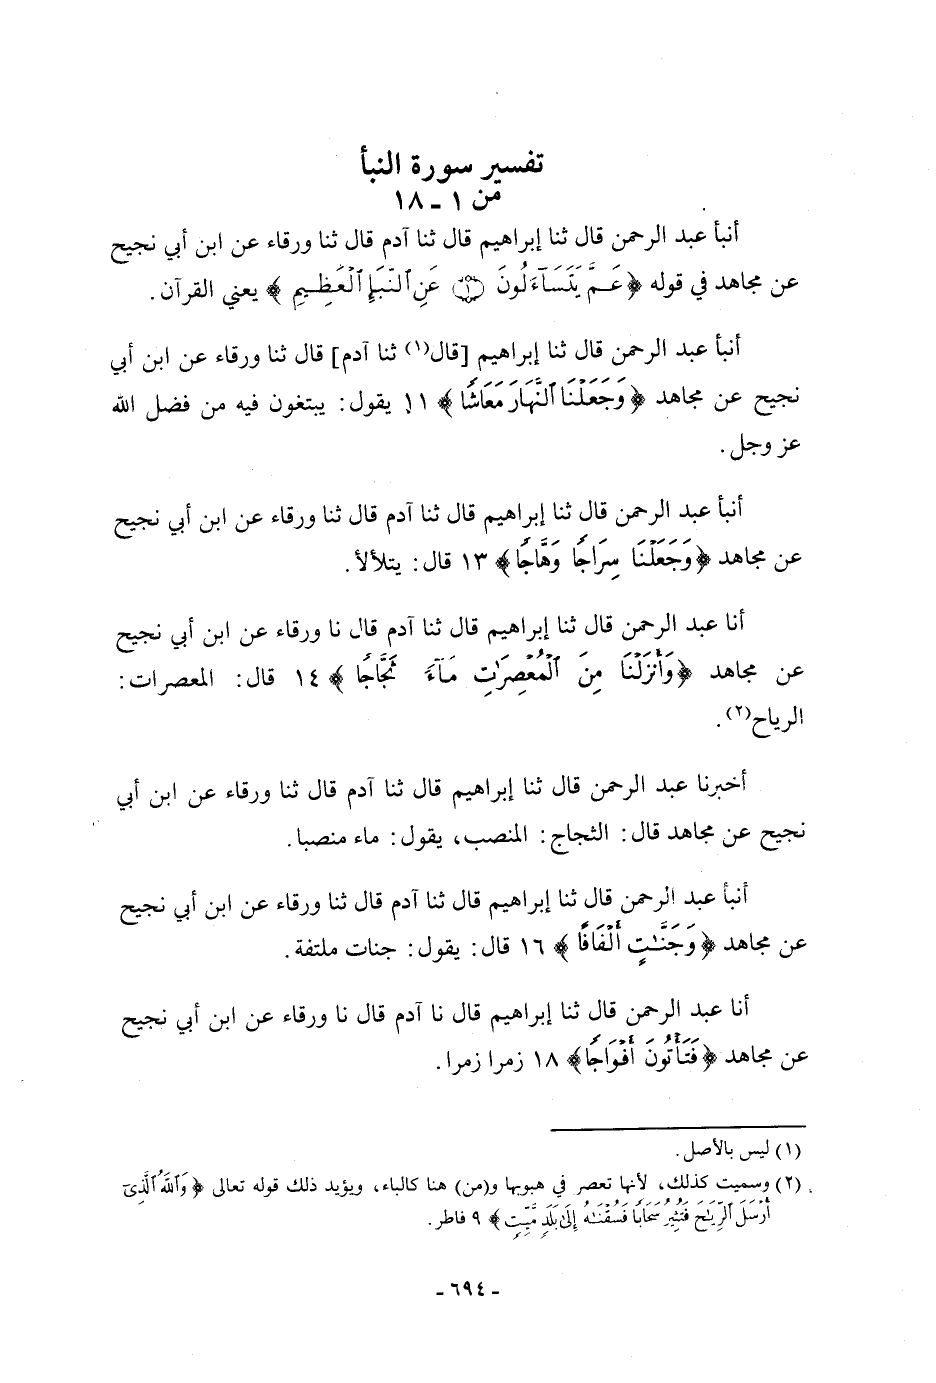 تفسير سورة النبأ
من ١ ـ ١٨
أنبأ عبد الرحمن قال ثنا إبراهيم قال ثنا آدم قال ثنا ورقاء عن ابن أبي نجيح
عن مجاهد في قوله ﴿عَمَّ يَتَسَآءَلُونَ ۝١ عَنِ ٱلنَّبَإِ ٱلْعَظِيمِ﴾ يعني القرآن.
أنبأ عبد الرحمن قال ثنا إبراهيم [قال(١) ثنا آدم] قال ثنا ورقاء عن ابن أبي
نجيح عن مجاهد ﴿وَجَعَلْنَا ٱلنَّهَارَ مَعَاشًا﴾ ١١ يقول: يبتغون فيه من فضل الله
عز وجل.
أنبأ عبد الرحمن قال ثنا إبراهيم قال ثنا آدم قال ثنا ورقاء عن ابن أبي نجيح
عن مجاهد ﴿وَجَعَلْنَا سِرَاجًا وَهَّاجًا﴾ ١٣ قال: يتلألأ.
أنا عبد الرحمن قال ثنا إبراهيم قال ثنا آدم قال نا ورقاء عن ابن أبي نجيح
عن مجاهد ﴿وَأَنزَلْنَا مِنَ ٱلْمُعْصِرَٰتِ مَآءً ثَجَّاجًا﴾ ١٤ قال: المعصرات:
الرياح(٢).
أخبرنا عبد الرحمن قال ثنا إبراهيم قال ثنا آدم قال ثنا ورقاء عن ابن أبي
نجيح عن مجاهد قال: الثجاج: المنصب، يقول: ماء منصبا.
أنبأ عبد الرحمن قال ثنا إبراهيم قال ثنا آدم قال ثنا ورقاء عن ابن أبي نجيح
عن مجاهد ﴿وَجَنَّٰتٍ أَلْفَافًا﴾ ١٦ قال: يقول: جنات ملتفة.
أنا عبد الرحمن قال ثنا إبراهيم قال نا آدم قال نا ورقاء عن ابن أبي نجيح
عن مجاهد ﴿فَتَأْتُونَ أَفْوَاجًا﴾ ١٨ زمرا زمرا.
(١) ليس بالأصل.
(٢) وسميت كذلك، لأنها تعصر في هبوبها و(من) هنا كالباء، ويؤيد ذلك قوله تعالى ﴿وَٱللَّهُ ٱلَّذِىٓ
أَرْسَلَ ٱلرِّيَٰحَ فَتُثِيرُ سَحَابًا فَسُقْنَٰهُ إِلَىٰ بَلَدٍ مَّيِّتٍ﴾ ٩ فاطر.
ـ ٦٩٤ ـ